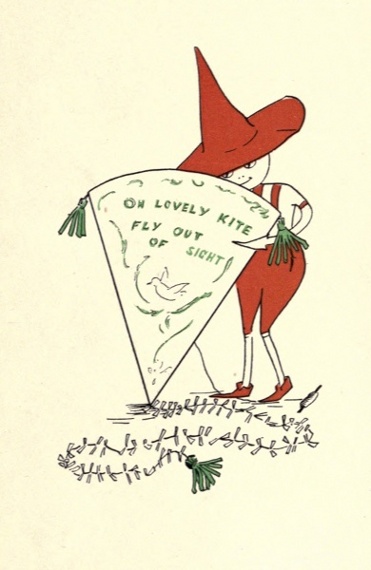 OH LOVELY KITE
FLY OUT
OF SIGHT